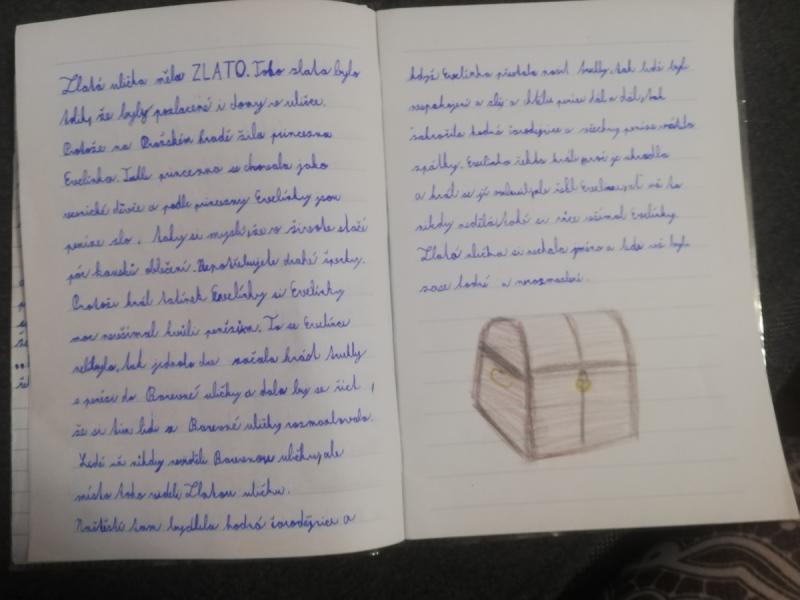 Zlatá ulička měla ZLATO. Toho zlata bylo
tolik, že byly pozlacené i domy v uličce.
Protože na Pražském hradě žila princezna
Evelínka. Tahle princezna se chovala jako
vesnické děvče a podle princezny Evelínky jsou
peníze zlo. taky si myslí že v životě stačí
pár kousků oblečení. Nepotřebujete drahé šperky.
Protože král tatínek Evelínky si Evelínky
moc nevšímal kvůli penězům. To se Evelínce
nelíbylo, tak jednoho dne začala krást truhly
s penězi do Barevné uličky a dalo by se říct,
že si tím lidi z Barevné uličky rozmazlovala.
Lidé už nikdy neviděli Barevnou uličku, ale
místo toho viděli Zlatou uličku.
Naštěstí tam bydlela hodná čarodějnice a
když Evelínka přestala nosit truhly, tak lidé byli
nespokojení a zlý a chtěli peníze dál a dál, tak
zakročila hodná čarodějnice a všechny peníze vrátila
zpátky. Evelínka řekla králi proč je ukradla
a král se jí omluvil
nikdy nedělá, také si více všímal Evelínky.
Zlatá ulička si nechala jméno a lidé už byli
zase hodní a nerozmazlení.